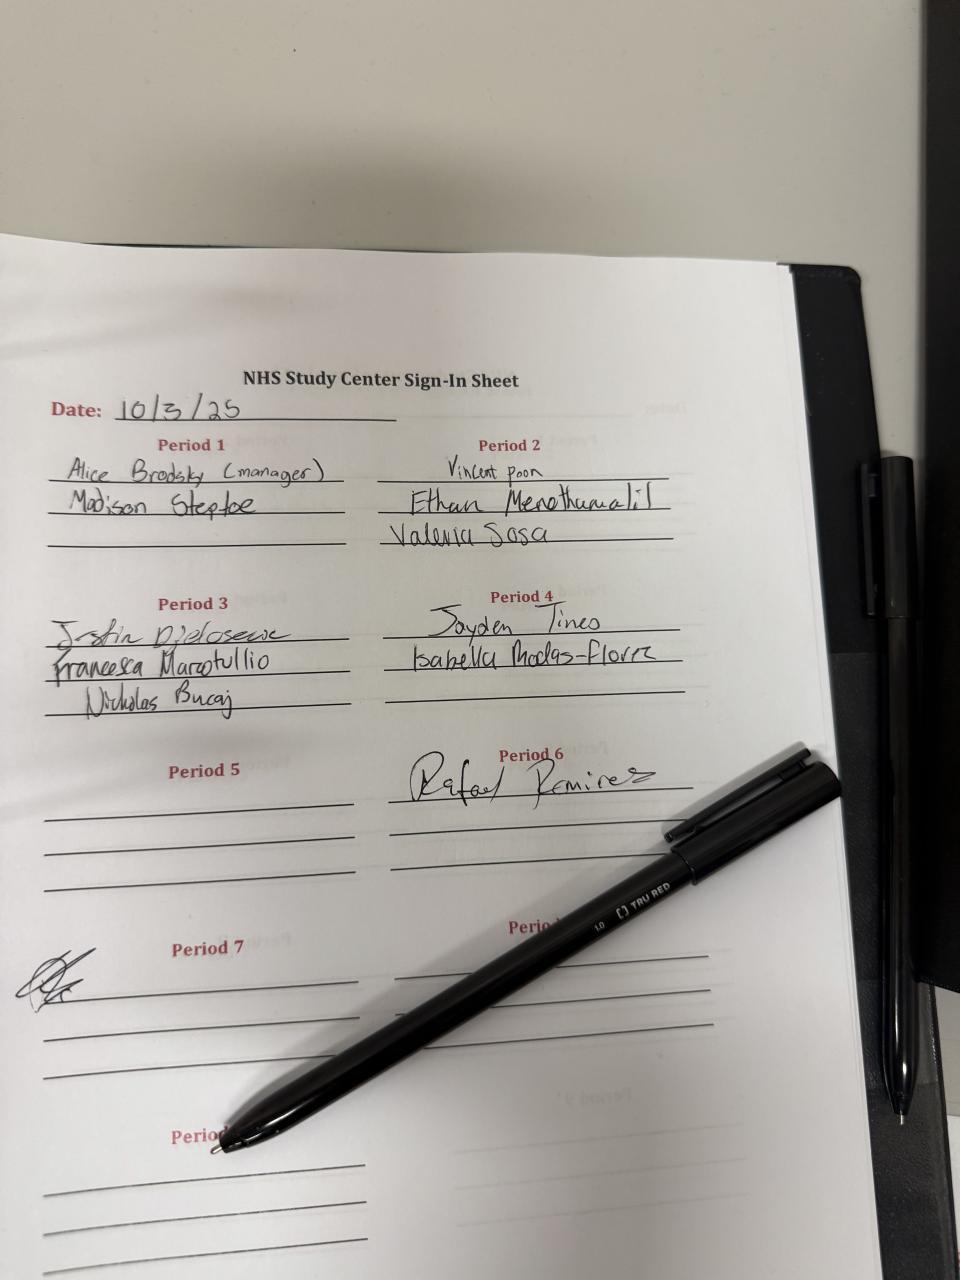 NHS Study Center Sign-In Sheet
Date: 10/3/25
Period 1
Alice Brodsky (manager)
Madison Steptoe
Period 2
Vincent poon
Ethan Menothumalil
Valeria Sosa
Period 3
Justin
Francesca Marcotullio
Nicholas Bucaj
Period 4
Jayden Tineo
Isabella
Period 5
Period 6
Rafael Ramirez
Period 7
1.0 TRU RED